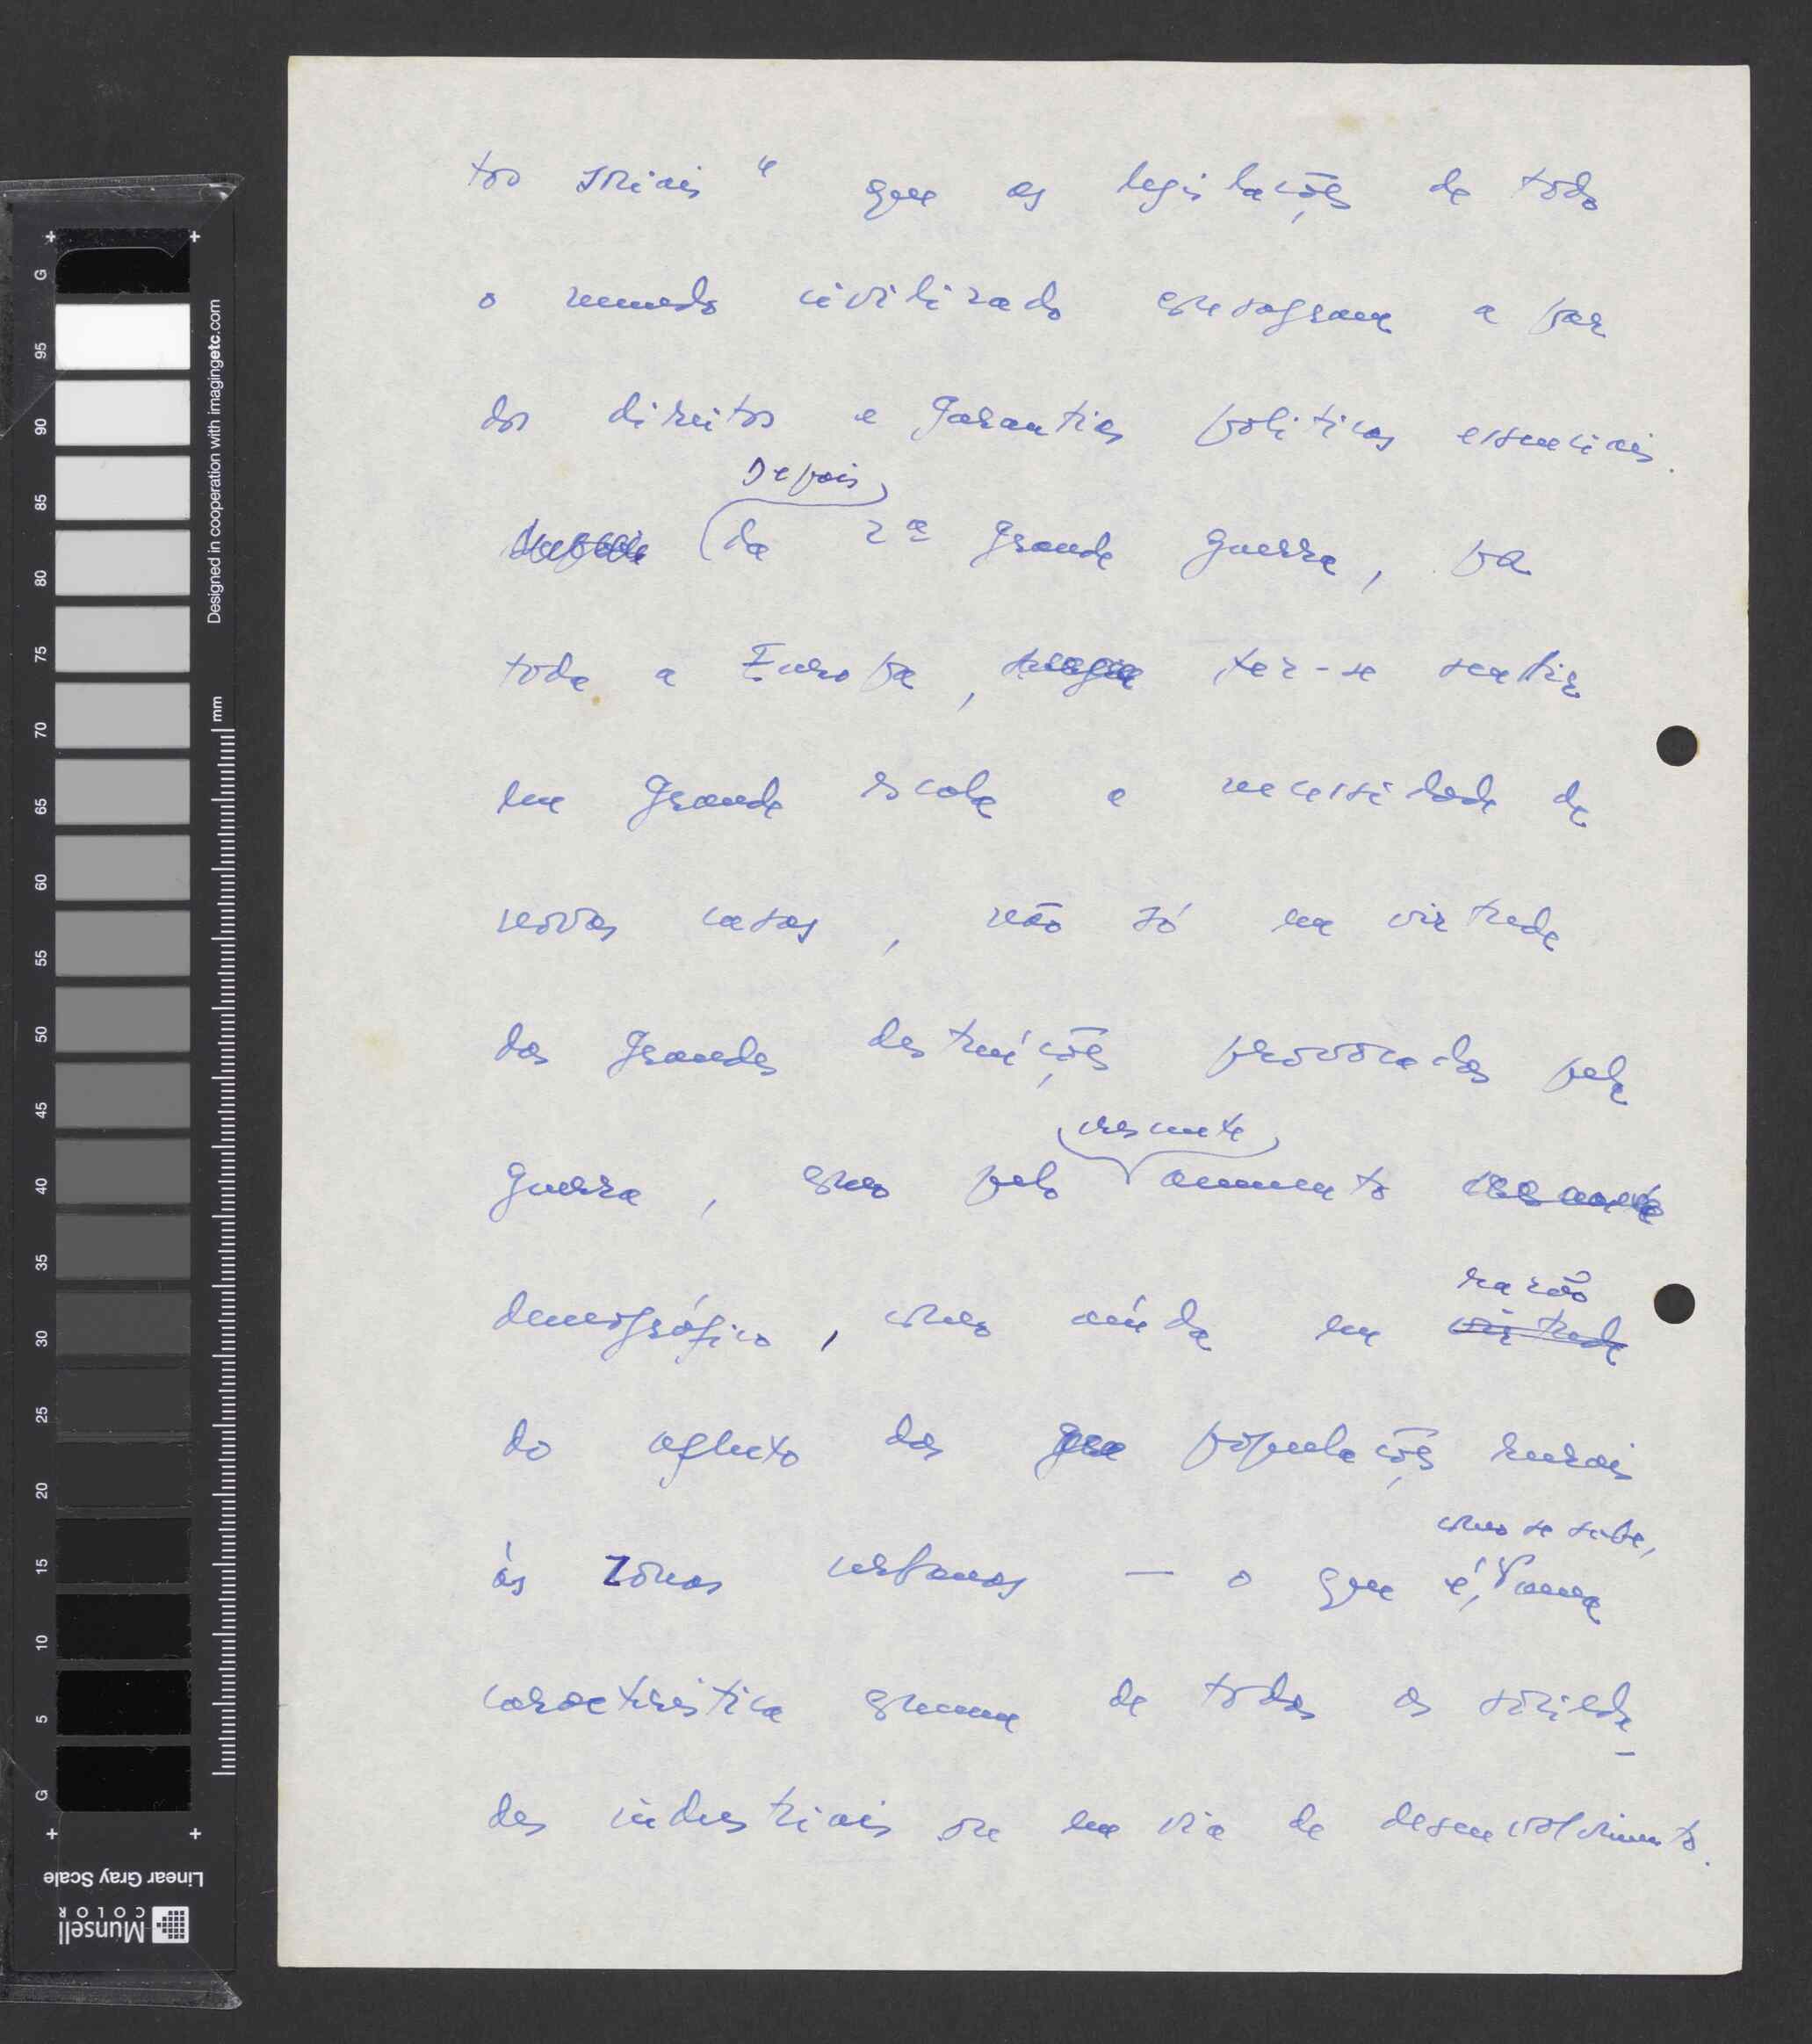 tos sociais" que as legislações de todo
o mundo civilizado consagram a par
dos direitos e garantias politicas essenciais.
Depois
da 2ª grande guerra, por
toda a Europa, fez-se sentir
em grande escala a necessidade de
novas casas, não só em virtude
das grandes destruições provocadas pela
crescente
guerra, como pelo aumento crescente
demográfico, como ainda em
razão
virtude
do afluxo das populações rurais
como se sabe,
às zonas urbanas — o que é, uma
característica comum de todas as socieda-
des industriais ou em via de desenvolvimento.
G
95
90
85
80
75
70
65
60
55
50
45
40
35
30
25
20
15
10
5
G
mm
Designed in cooperation with imagingetc.com
Linear Gray Scale
Munsell
COLOR